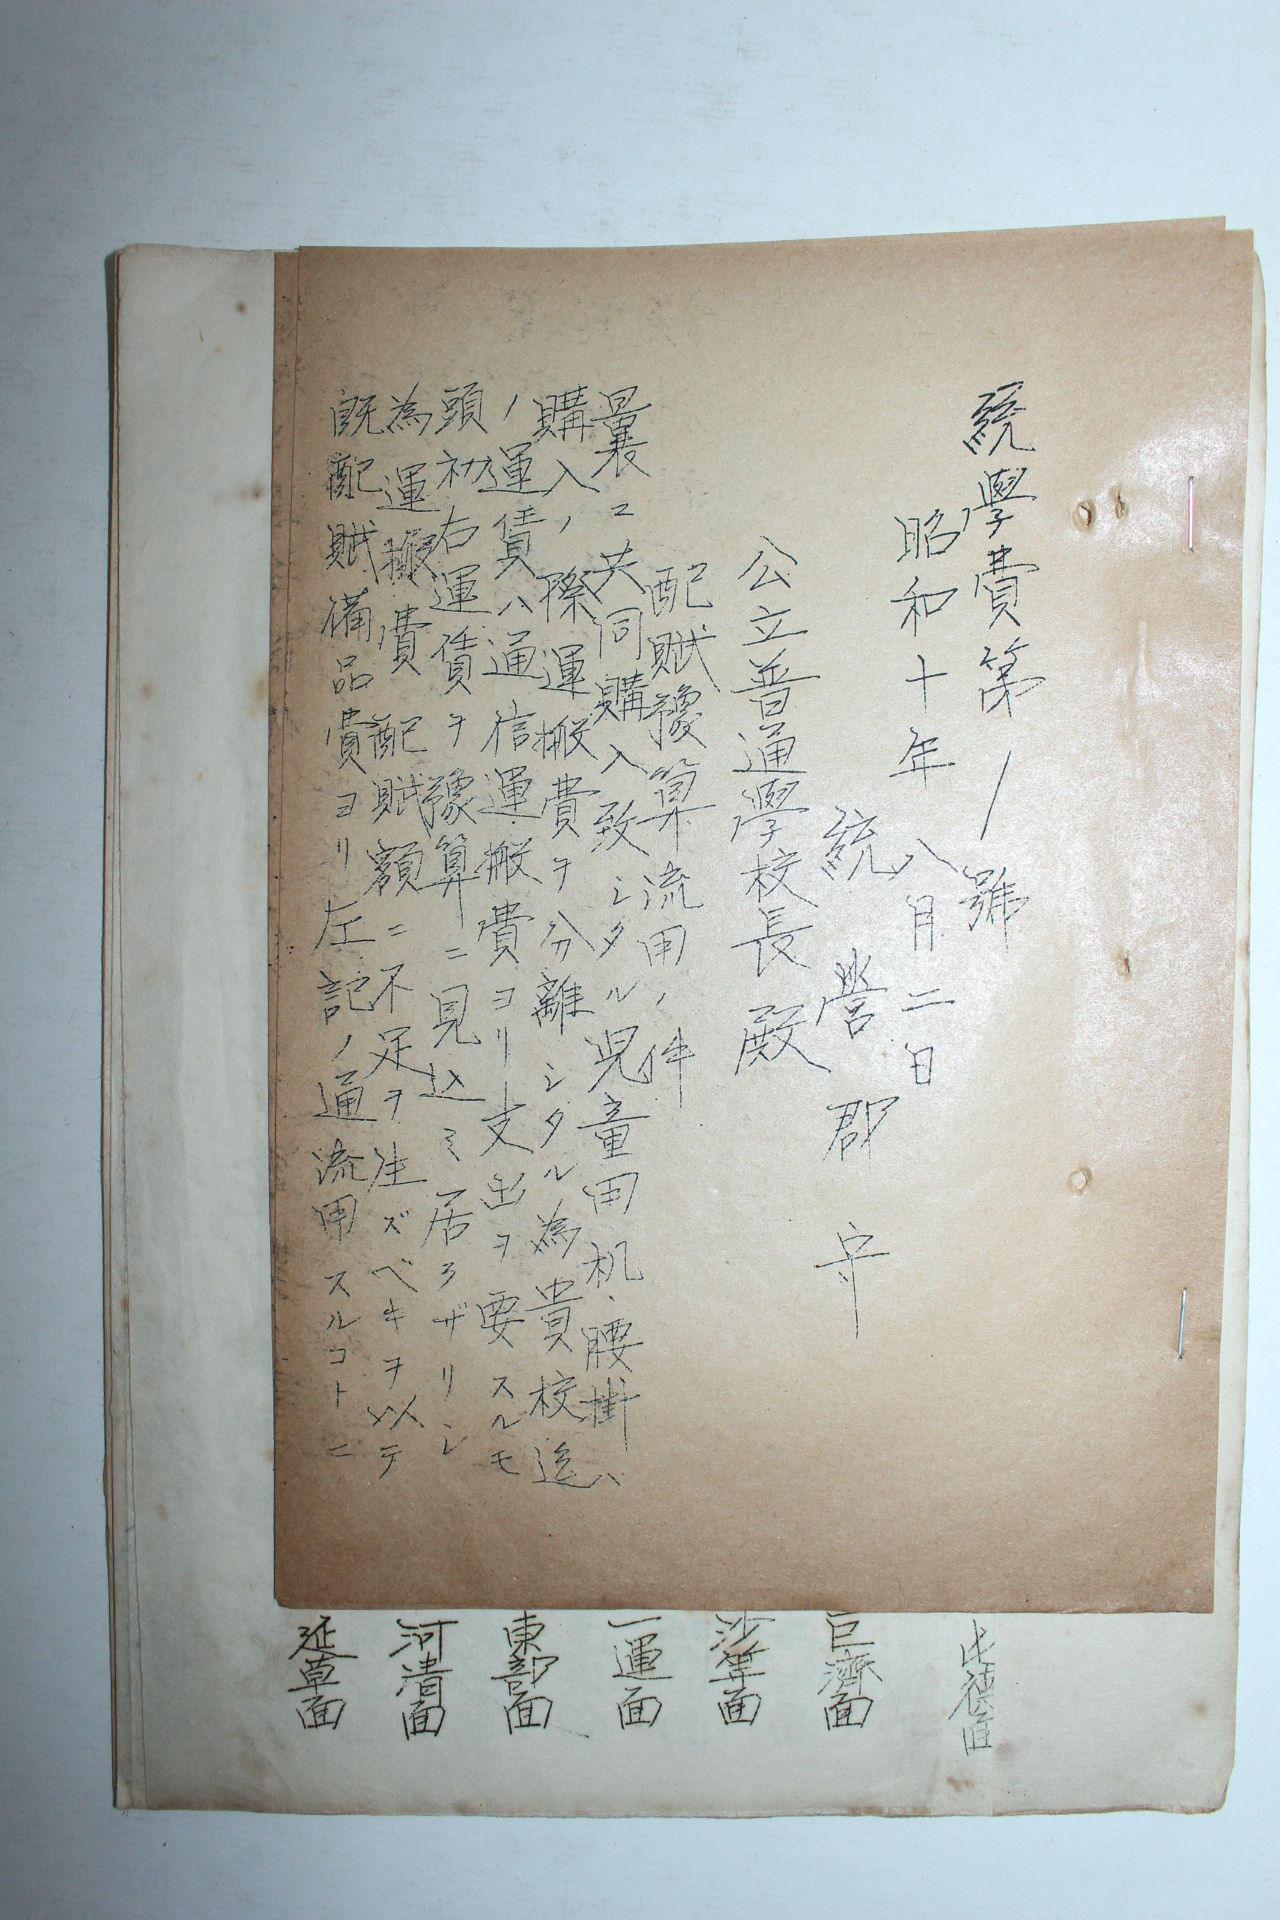 統學費第一號
昭和十年八月二日
統營郡守
公立普通學校長殿
配賦豫算流用ノ件
曩ニ共同購入致シタル児童用机、腰掛ハ
購入ノ際運搬費ヲ分離シタル為貴校迄
ノ運賃ハ通信運搬費ヨリ支出ヲ要スルモ
頭初右運賃ヲ豫算ニ見込ミ居ラザリシ
為運搬費配賦額ニ不足ヲ生ズベキヲ以テ
既配賦備品費ヨリ左記ノ通流用スルコトニ
巨濟面
沙等面
一運面
東部面
河清面
延草面